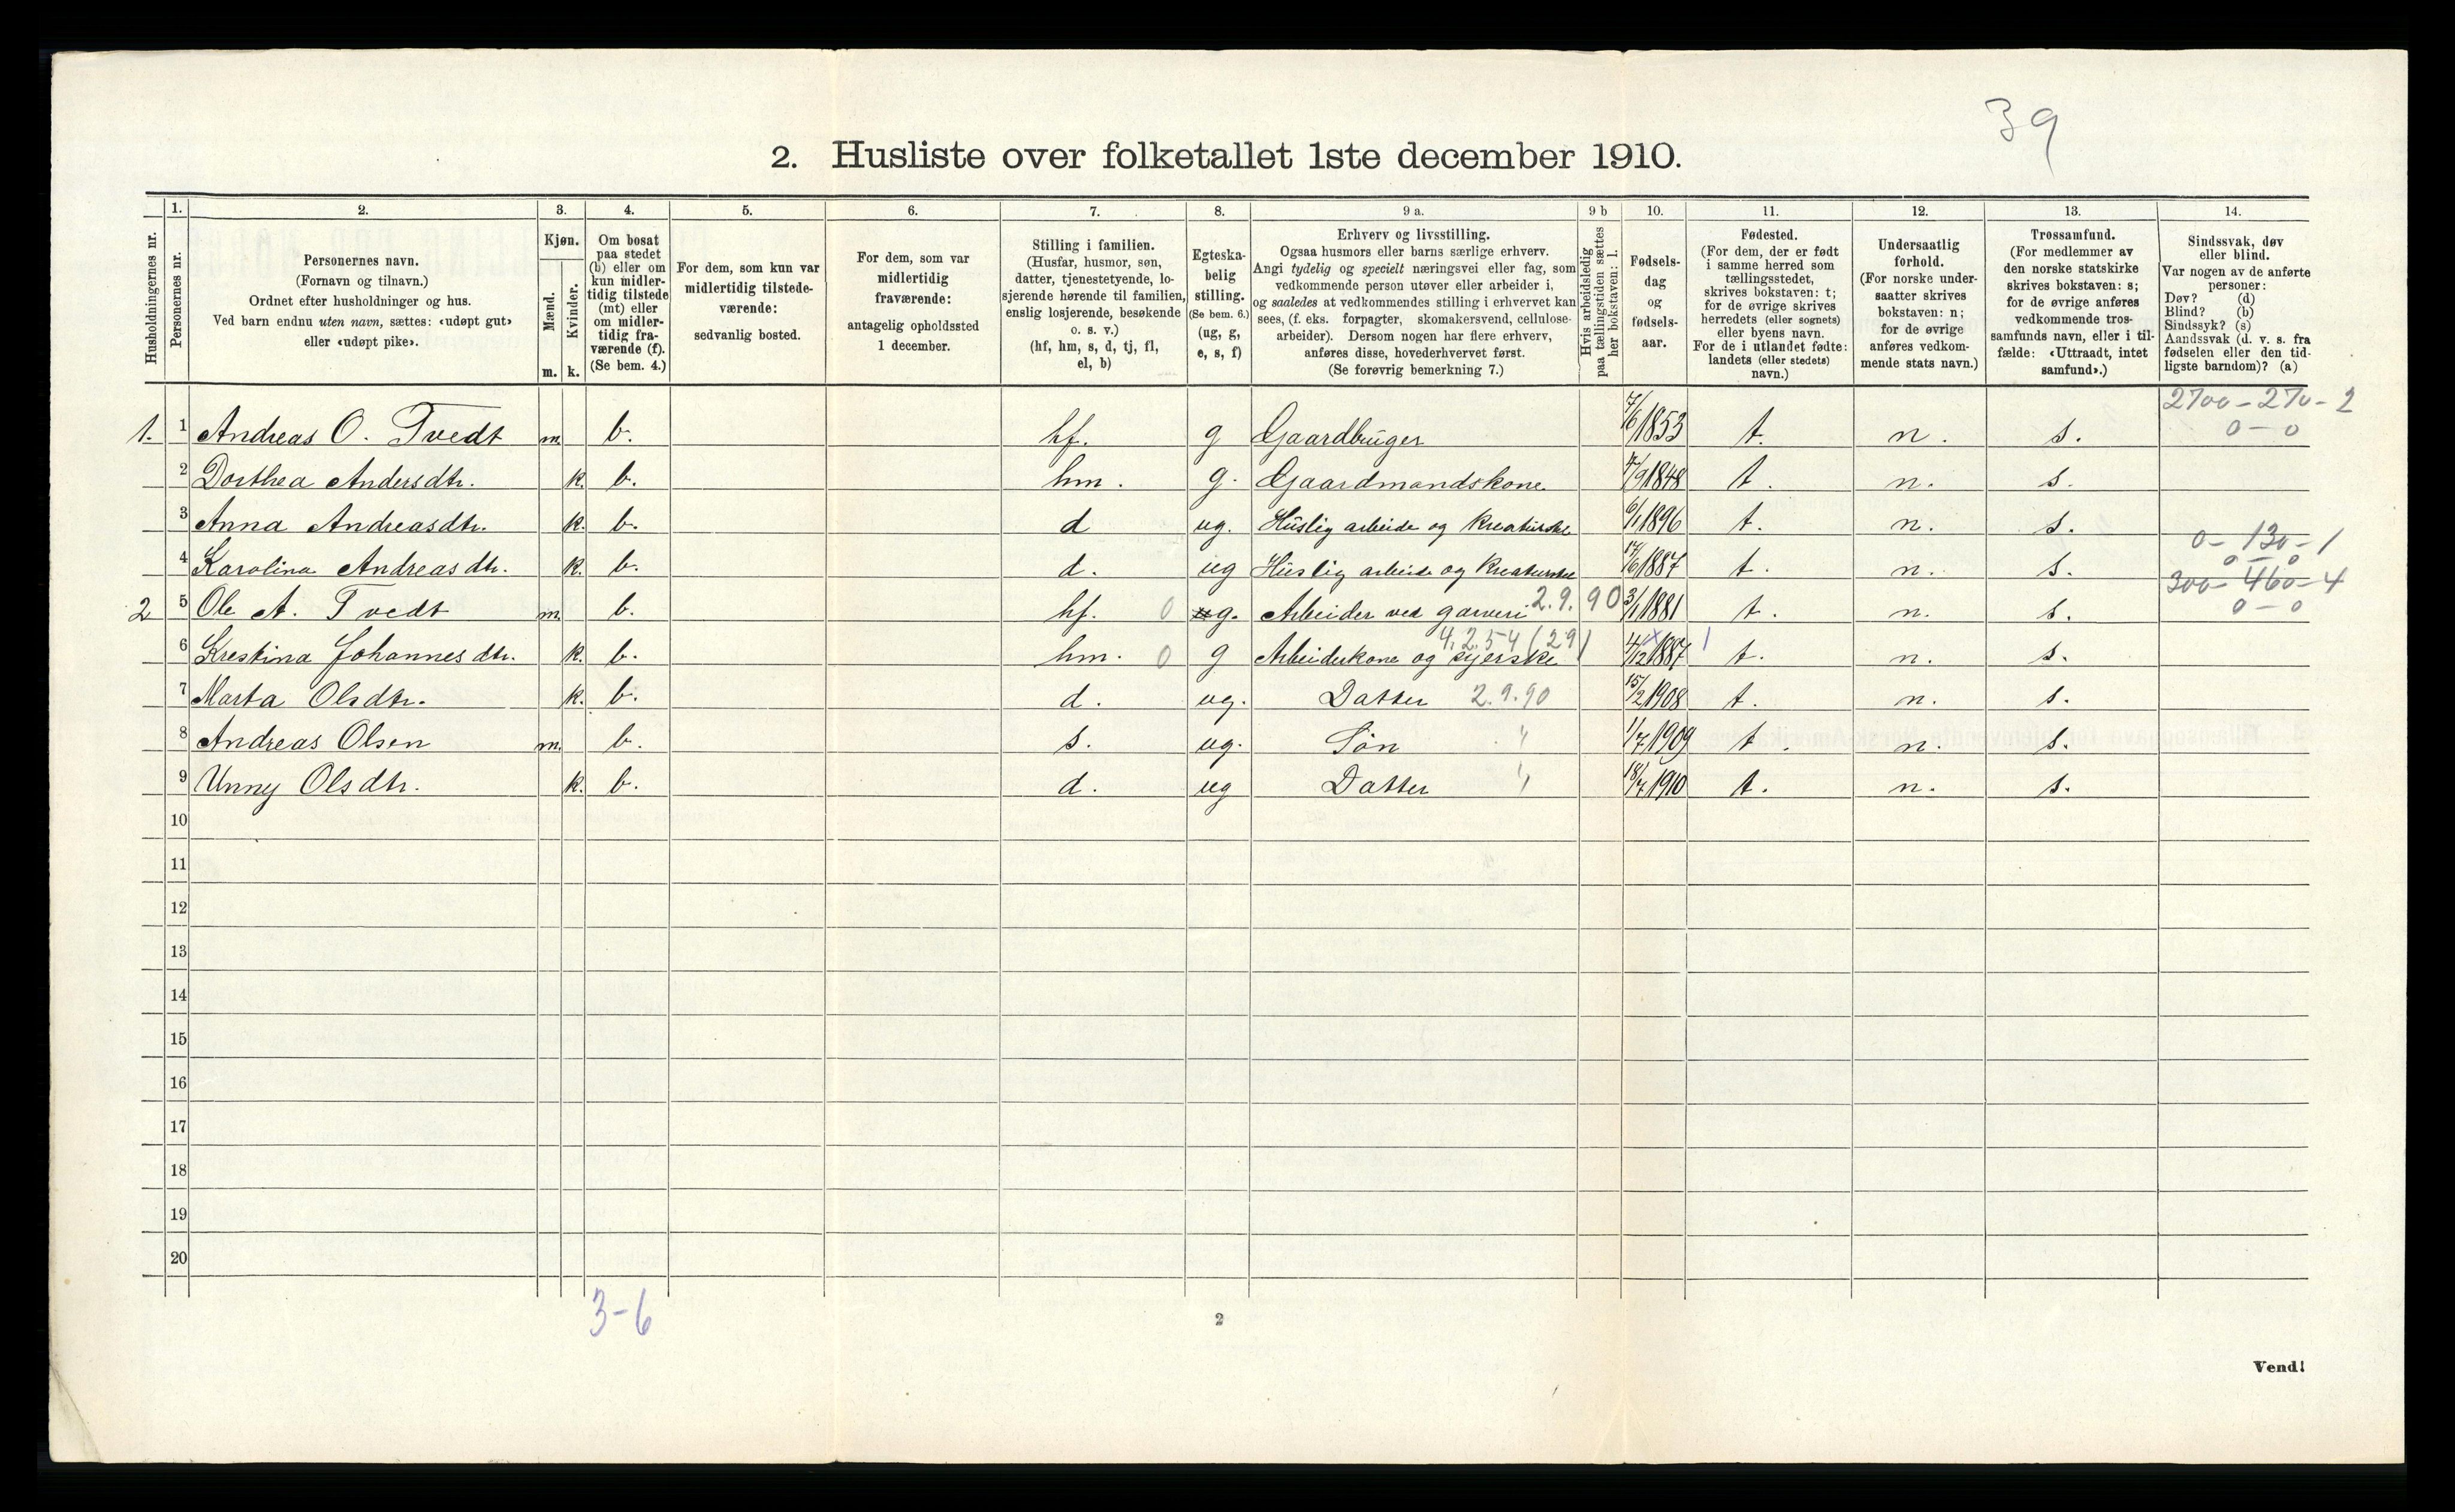 39
2. Husliste over folketallet 1ste december 1910.
Husholdningernes nr.
1. Personernes nr.
2. Personernes navn.
(Fornavn og tilnavn.)
Ordnet efter husholdninger og hus.
Ved barn endnu uten navn, sættes: «udøpt gut»
eller «udøpt pike».
3. Kjøn.
Mænd. m.
Kvinder. k.
4. Om bosat
paa stedet
(b) eller om
kun midler-
tidig tilstede
(mt) eller
om midler-
tidig fra-
værende (f).
(Se bem. 4.)
5. For dem, som kun var
midlertidig tilstede-
værende:
sedvanlig bosted.
6. For dem, som var
midlertidig
fraværende:
antagelig opholdssted
1 december.
7. Stilling i familien.
(Husfar, husmor, søn,
datter, tjenestetyende, lo-
sjerende hørende til familien,
enslig losjerende, besøkende
o. s. v.)
(hf, hm, s, d, tj, fl,
el, b)
8. Egteska-
belig
stilling.
(Se bem. 6.)
(ug, g,
e, s, f)
9 a. Erhverv og livsstilling.
Ogsaa husmors eller barns særlige erhverv.
Angi tydelig og specielt næringsvei eller fag, som
vedkommende person utøver eller arbeider i,
og saaledes at vedkommendes stilling i erhvervet kan
sees, (f. eks. forpagter, skomakersvend, cellulose-
arbeider). Dersom nogen har flere erhverv,
anføres disse, hovederhvervet først.
(Se forøvrig bemerkning 7.)
9 b Hvis arbeidsledig
paa tællingstiden sættes
her bokstaven: l.
10. Fødsels-
dag
og
fødsels-
aar.
11. Fødested.
(For dem, der er født
i samme herred som
tællingsstedet,
skrives bokstaven: t;
for de øvrige skrives
herredets (eller sognets)
eller byens navn.
For de i utlandet fødte:
landets (eller stedets)
navn.)
12. Undersaatlig
forhold.
(For norske under-
saatter skrives
bokstaven: n;
for de øvrige
anføres vedkom-
mende stats navn.)
13. Trossamfund.
(For medlemmer av
den norske statskirke
skrives bokstaven: s;
for de øvrige anføres
vedkommende tros-
samfunds navn, eller i til-
fælde: «Uttraadt, intet
samfund».)
14. Sindssvak, døv
eller blind.
Var nogen av de anførte
personer:
Døv? (d)
Blind? (b)
Sindssyk? (s)
Aandssvak (d. v. s. fra
fødselen eller den tid-
ligste barndom)? (a)
2700 - 270 - 2
1. 1 Andreas O. Tvedt m b. hf. g Gaardbruger 7/6 1853 t. n. s. 0 - 0
2 Dorthea Andersdtr. k. b. hm. g. Gaardmandskone 1848 t. n. s.
3 Anna Andreasdtr. k. b. d ug. Huslig arbeide og Kreaturstel 6/1 1896 t. n. s.
0 - 130 - 1
4 Karolina Andreasdtr. k. b. d. ug Huslig arbeide og Kreaturstel 17/6 1887 t. n. s. 0 - 0
300 - 460 - 4
2 5 Ole A. Tvedt m. b. hf. 0 g. Arbeider ved garveri 2.9.90 3/1 1881 t. n. s. 0 - 0
4.2.54 (29)
6 Krestina Johannesdtr. k. b. hm. 0 g Arbeiderkone og syerske 4/12 1887 t. n. s.
7 Marta Olsdtr. k. b. d. ug. Datter 2.9.90 15/2 1908 t. n. s.
8 Andreas Olsen m. b. s. ug. Søn " 1/7 1909 t. n. s.
9 Unny Olsdtr. k. b. d. ug Datter " 18/7 1910 t. n. s.
10
11
12
13
14
15
16
17
18
19
20
3-6
2
Vend!